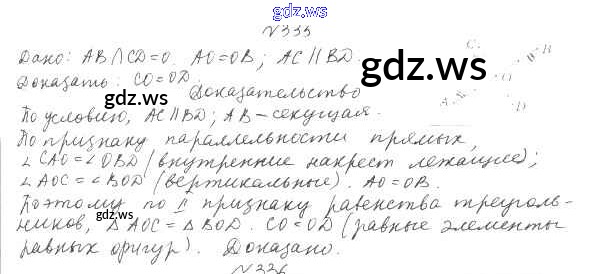 gdz.ws
№333
Дано: AB∩CD=O. AO=OB; AC∥BD.
Доказать: CO=OD.
gdz.ws
Доказательство
gdz.ws
По условию, AC∥BD; AB-секущая.
C. B
O
A D
По признаку параллельности прямых,
∠CAO=∠OBD (внутренние накрест лежащие);
∠AOC=∠BOD (вертикальные). AO=OB.
Поэтому по II признаку равенства треуголь-
gdz.ws
ников, ΔAOC=ΔBOD. CO=OD (равные элементы
равных фигур). Доказано.
gdz.ws
gdz.ws
№336